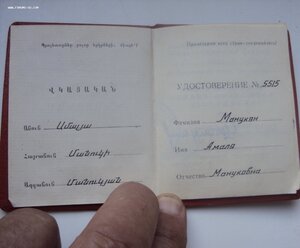 Պրոլետարներ բոլոր երկրների, միացե՛ք
ՎԿԱՅԱԿԱՆ
Անուն Ամալյա
Հայրանուն Մանուկի
Ազգանուն Մանուկյան
Пролетарии всех стран, соединяйтесь!
УДОСТОВЕРЕНИЕ № 5515
Фамилия Манукян
Имя Амаля
Отчество Мануковна